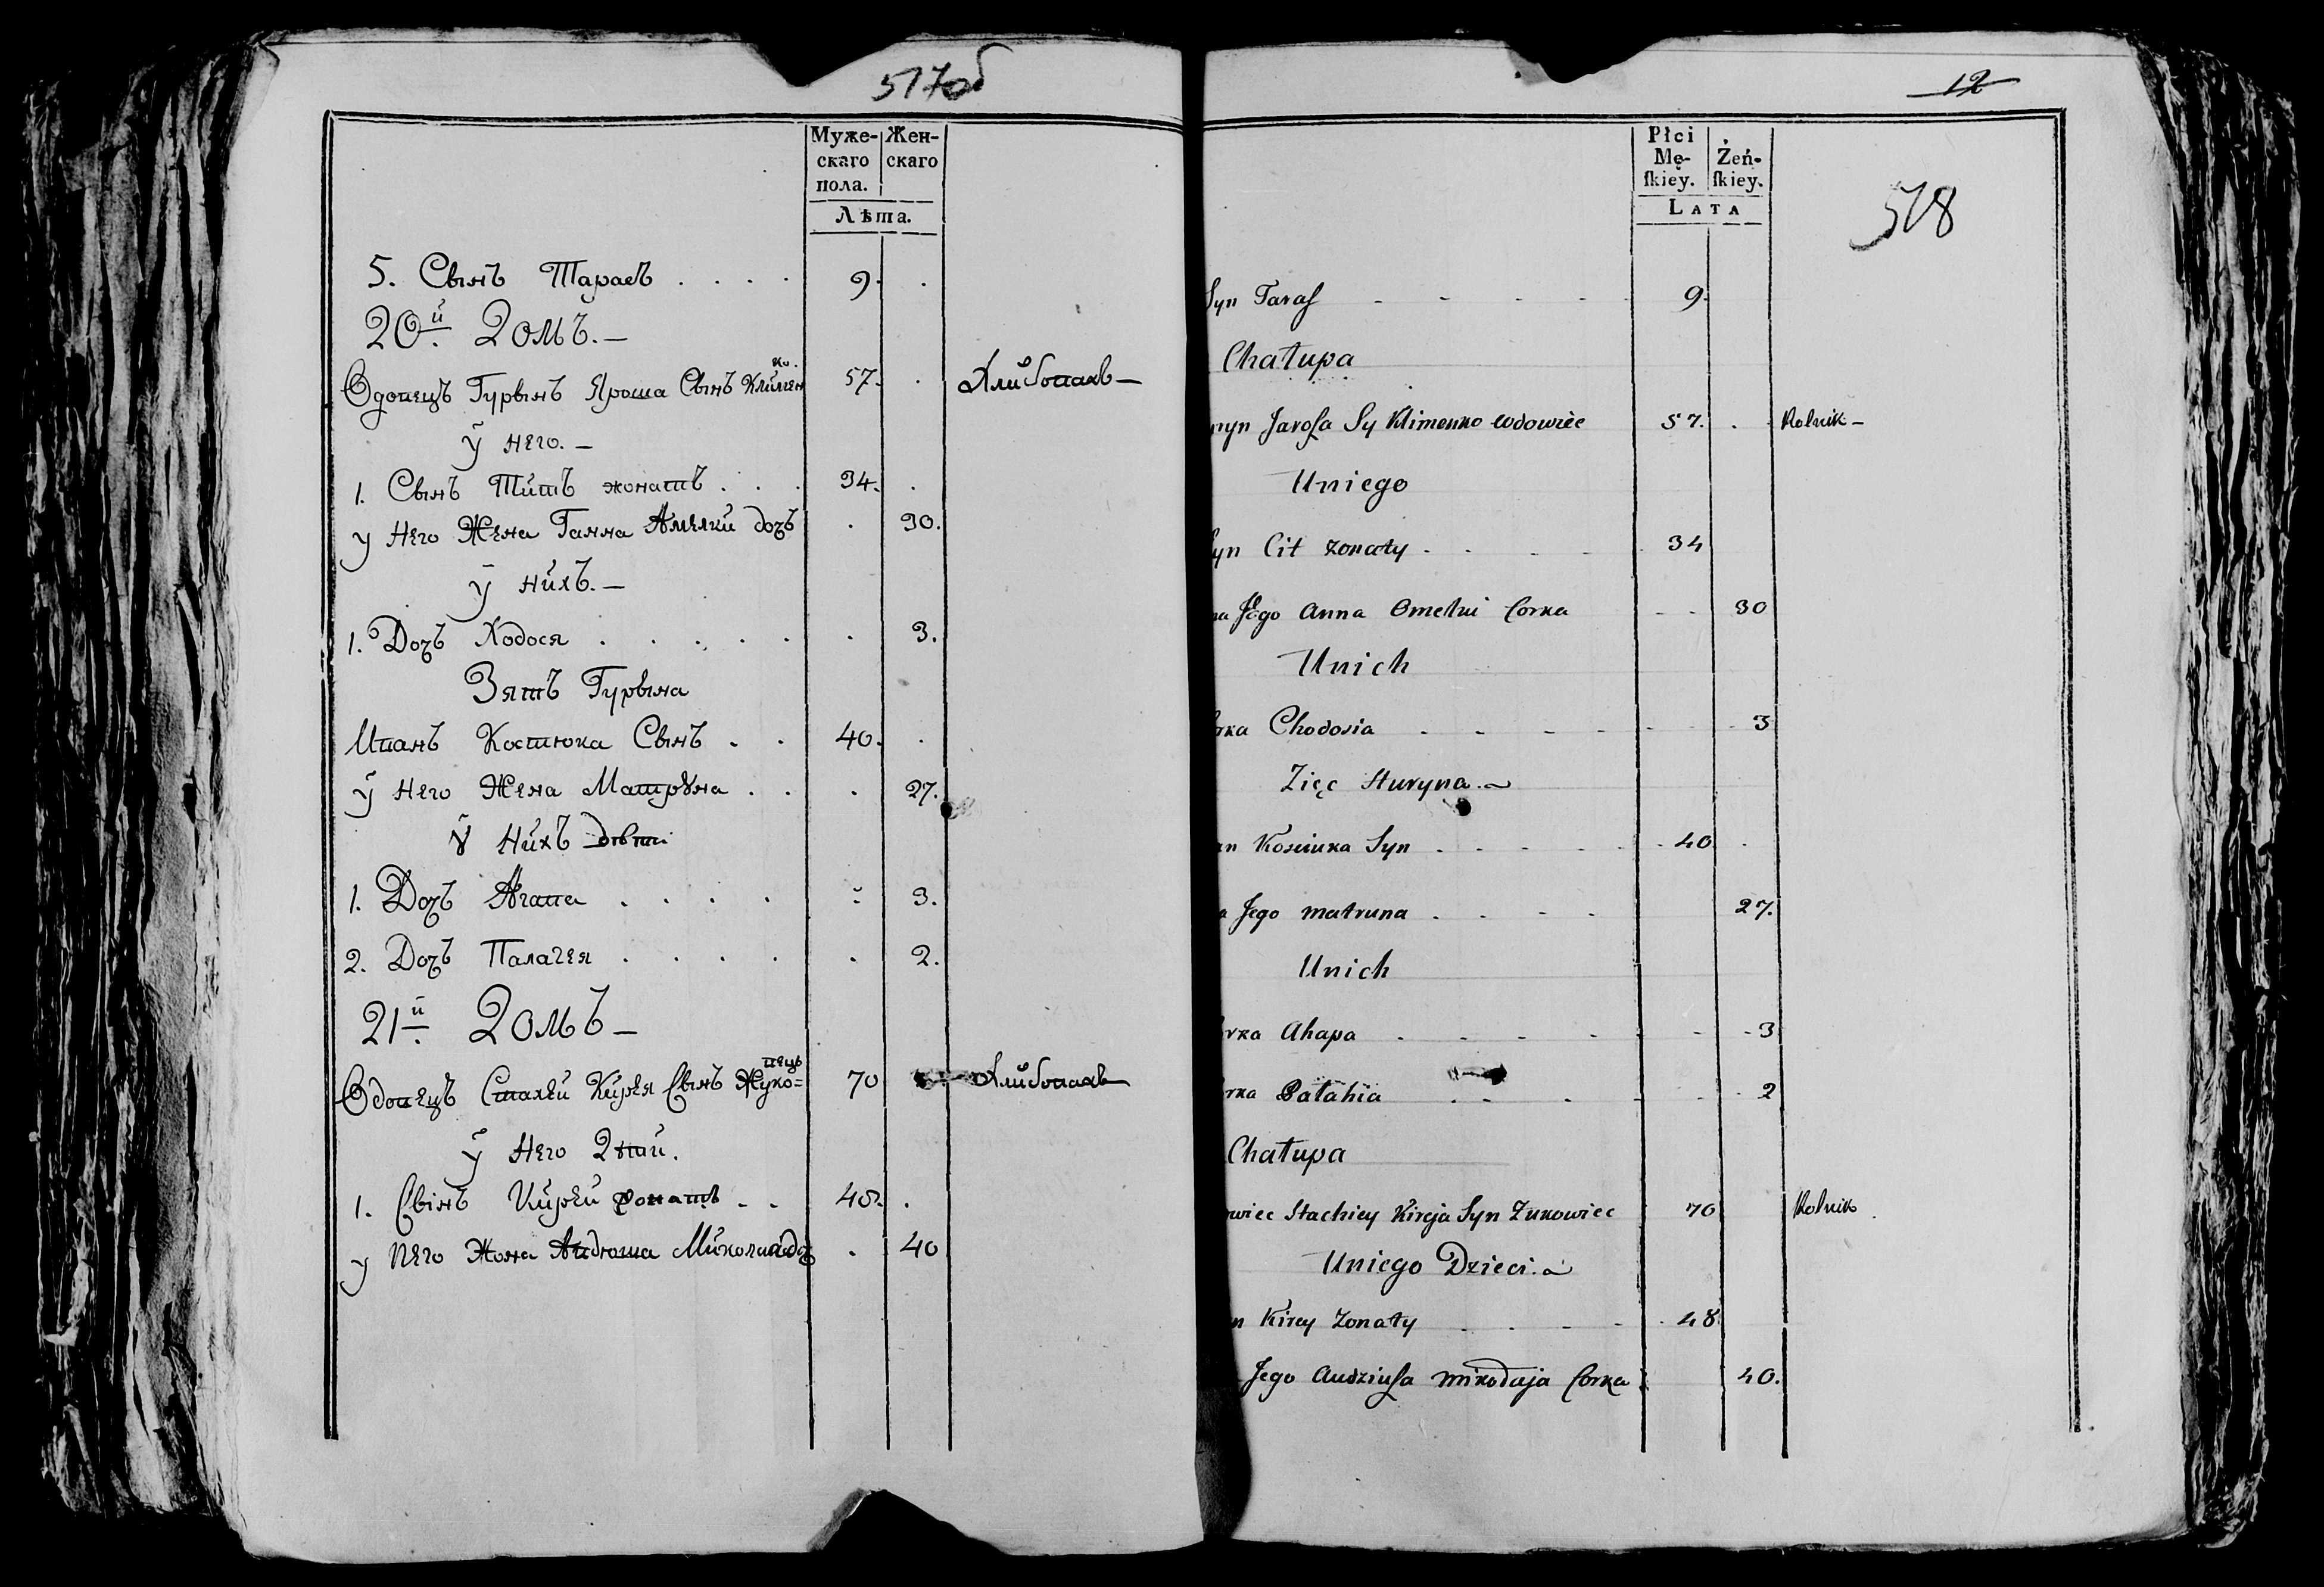 517об
Муже- Жен-
скаго скаго
пола.
Лѣта.
5. Сынъ Тарасъ . . . . 9. .
20й. Домъ.—
ко.
Вдовецъ Гурвинъ Яроша Сынъ Климен 57. . Хлибопахъ—
у него.—
1. Сынъ Титъ жонатъ . . . 34. .
у него Жена Ганна Амелки дочъ . 30.
у нихъ.—
1. Дочъ Ходося . . . . . . 3.
Зятъ Гурвина
Иванъ Костюка Сынъ . . 40. .
у него Жена Матрѵна . . . 27.
ȣ нихъ дѣти
1. Дочъ Агапа . . . . . 3.
2. Дочъ Палагея . . . . . 2.
21й. Домъ—
вецъ
Вдовецъ Стахей Кирея Сынъ Жуко= 70 Хлибопахъ
у него Дѣти.
1. Сынъ Кирей жонатъ . . 48. .
у него Жона Авдюша Миколая доч . 40
12
518
Płci
Mę- Żeń-
ſkiey. ſkiey.
LATA
Syn Taraſ - - - - 9.
Chałupa
Jaroſa Sy Klimenko wdowiec 57. . Rolnik—
Uniego
Syn Cit żonaty . . . . 34
Jego Anna Omelki Corka . . 30
Unich
Chodosia - - - - - 3
Zięc Huryna.
Kosciuka Syn . . . . . 40 .
Jego matruna . . . . 27.
Unich
Ahapa . . . . . 3
Pałahia . . . . 2
Chałupa
Stachiey Kireja Syn Żukowiec 70 Rolnik.
Uniego Dzieci.
Kirey Żonaty . . . . 48
Jego Audziuſa mikołaja Corka 40.